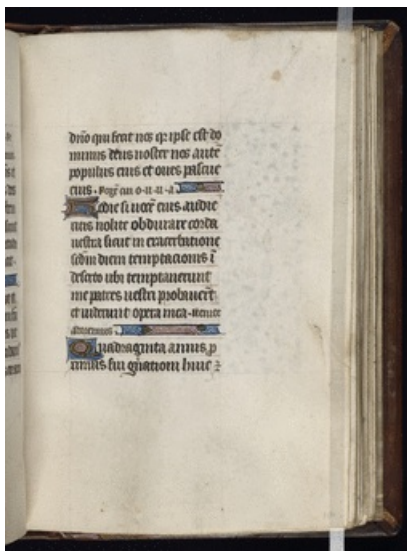 dño qui fecit nos q̃ ipse est do
minus deus noster nos autē
populus eius et oues pascue
eius.
Hodie si uocẽ eius audie
ritis nolite obdurare corda
uestra sicut in exacerbatione
scđm diem temptacionis ī
deserto ubi temptauerunt
me patres uestri probauerũt
et uiderunt opera mea.
Quadraginta annis p
ximus fui gñationi huic